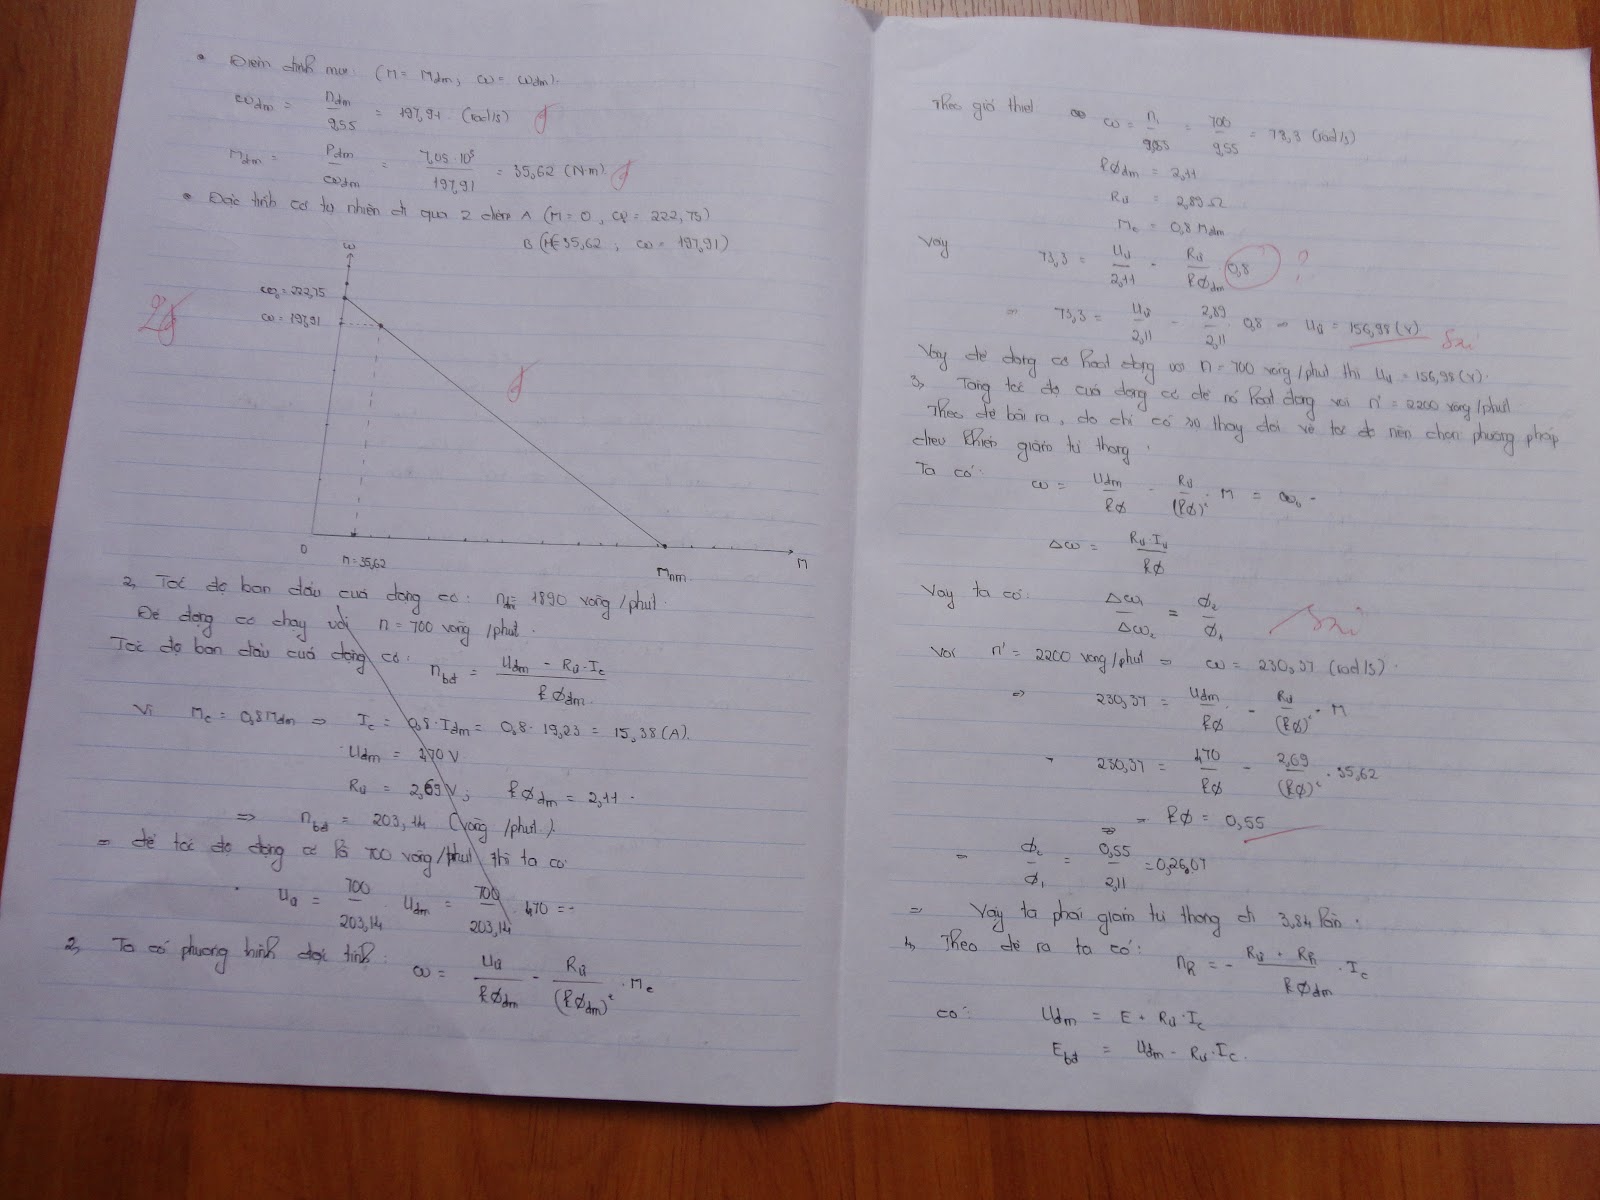 • Điểm định mức: (M = Mđm, ω = ωđm).
ωđm = nđm / 9,55 = 197,91 (rad/s)
Mđm = Pđm / ωđm = 7,05·10³ / 197,91 = 35,62 (N·m)
• Đặc tính cơ tự nhiên đi qua 2 điểm A (M = 0, ω = 222,75)
B (M = 35,62, ω = 197,91)
ω
ω₀ = 222,75
ω = 197,91
0
M = 35,62
Mnm
M
2, Tốc độ ban đầu của động cơ: nđm = 1890 vòng/phút.
Để động cơ chạy với n = 700 vòng/phút.
Tốc độ ban đầu của động cơ: nbđ = (Uđm - Rư·Ic) / kφđm
Vì Mc = 0,8Mđm ⇒ Ic = 0,8·Iđm = 0,8·19,23 = 15,38 (A).
Uđm = 470 V
Rư = 2,69 V; kφđm = 2,11.
⇒ nbđ = 203,14 (vòng/phút).
= để tốc độ động cơ là 700 vòng/phút thì ta có:
Uư = 700 / 203,14 · Uđm = 700 / 203,14 · 470 = -
2, Ta có phương trình đặc tính: ω = Uư / kφđm - Rư / (kφđm)² · Mc
Theo giả thiết ω = n / 9,55 = 700 / 9,55 = 73,3 (rad/s)
kφđm = 2,11
Rư = 2,89 Ω
Mc = 0,8 Mđm
Vậy 73,3 = Uư / 2,11 - Rư / kφđm 0,8 ?
⇒ 73,3 = Uư / 2,11 - 2,89 / 2,11 · 0,8 ⇒ Uư = 156,98 (V) Sai
Vậy để động cơ hoạt động với n = 700 vòng/phút thì Uư = 156,98 (V).
3, Tăng tốc độ của động cơ để nó hoạt động với n' = 2200 vòng/phút
Theo đề bài ra, do chỉ có sự thay đổi về tốc độ nên chọn phương pháp
điều khiển giảm từ thông.
Ta có: ω = Uđm / kφ - Rư / (kφ)² · M = ω₀ -
Δω = Rư·Iư / kφ
Vậy ta có: Δω₁ / Δω₂ = φ₂ / φ₁ Sai
Với n' = 2200 vòng/phút ⇒ ω = 230,37 (rad/s).
⇒ 230,37 = Uđm / kφ - Rư / (kφ)² · M
230,37 = 470 / kφ - 2,69 / (kφ)² · 35,62
⇒ kφ = 0,55
= φ₂ / φ₁ = 0,55 / 2,11 = 0,2607
⇒ Vậy ta phải giảm từ thông đi 3,84 lần.
4, Theo đề ra ta có: nR = - (Rư + Rh) / kφđm · Ic
có: Uđm = E + Rư·Ic
Ebđ = Uđm - Rư·Ic.